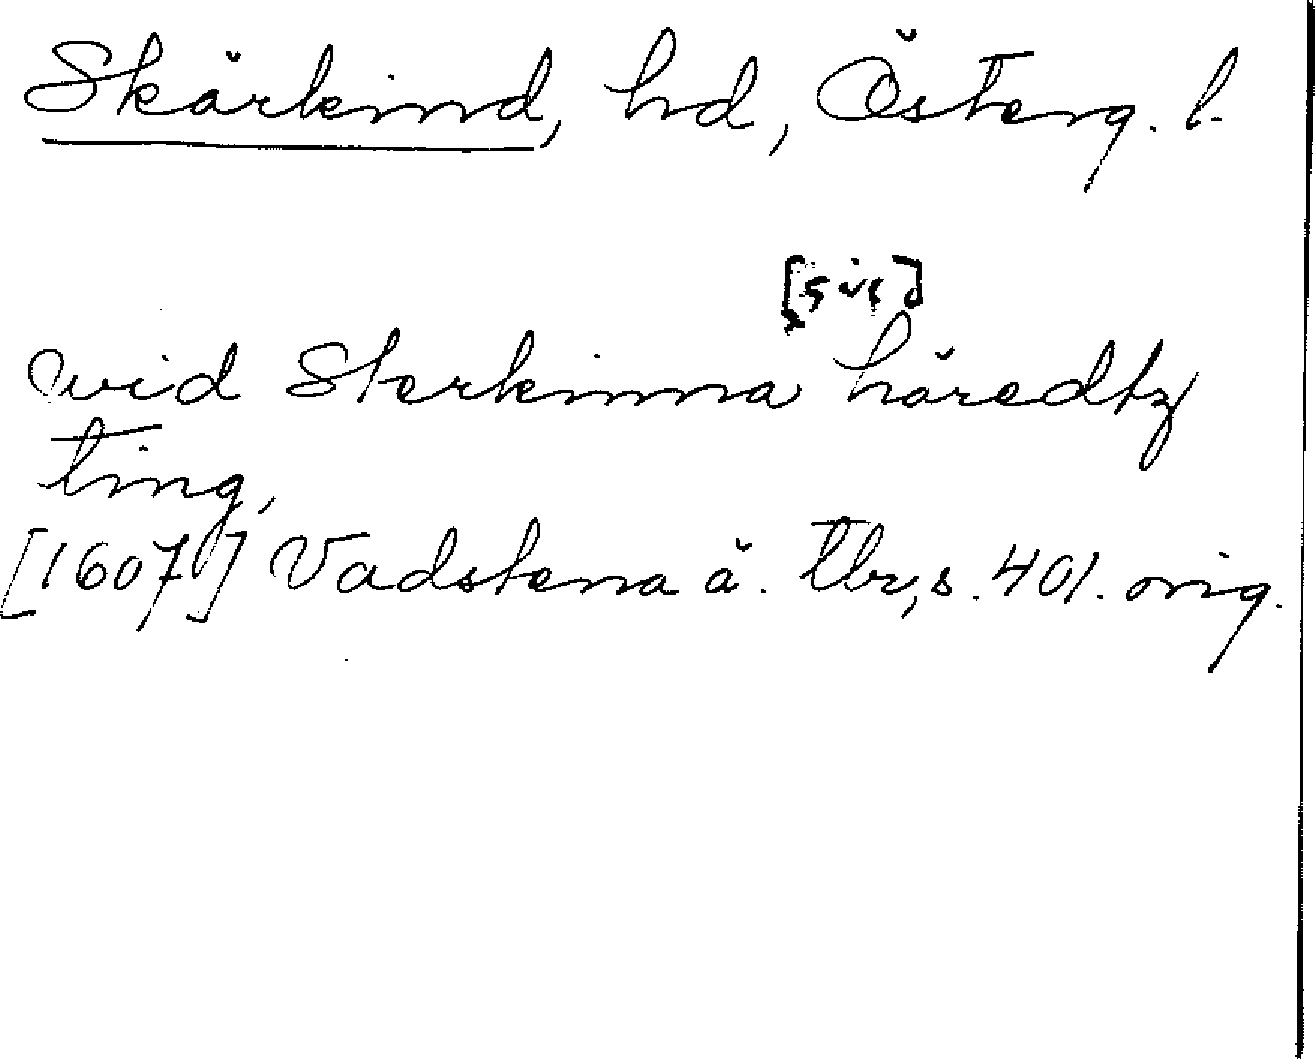 Skärkind, hd, Österg. l.
[sic]
wid Sterkinna häredtz
ting,
[1607] Vadstena ä. tbr, s. 401. orig.